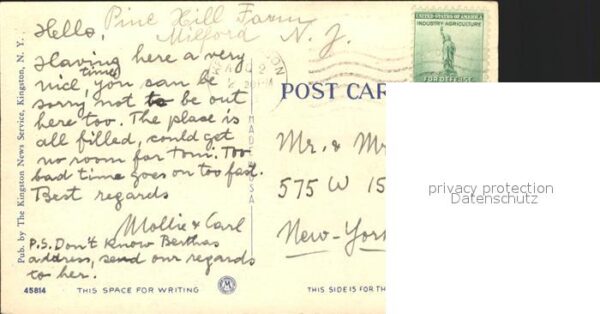 Pine Hill Farm
Milford N. J.
Hello,
Having here a very
nice time, you can be
sorry not to be out
here too. The place is
all filled, could get
no room for Tom. Too
bad time goes on too fast.
Best regards
Mollie & Carl
P.S. Don't know Berthas
address, send our regards
to her.
Pub. by The Kingston News Service, Kingston, N. Y.
45814
THIS SPACE FOR WRITING
UNITED STATES OF AMERICA
INDUSTRY AGRICULTURE
FOR DEFENSE
POST CAR
Mr. & M
575 W 15
New-York
THIS SIDE IS FOR TH
privacy protection
Datenschutz